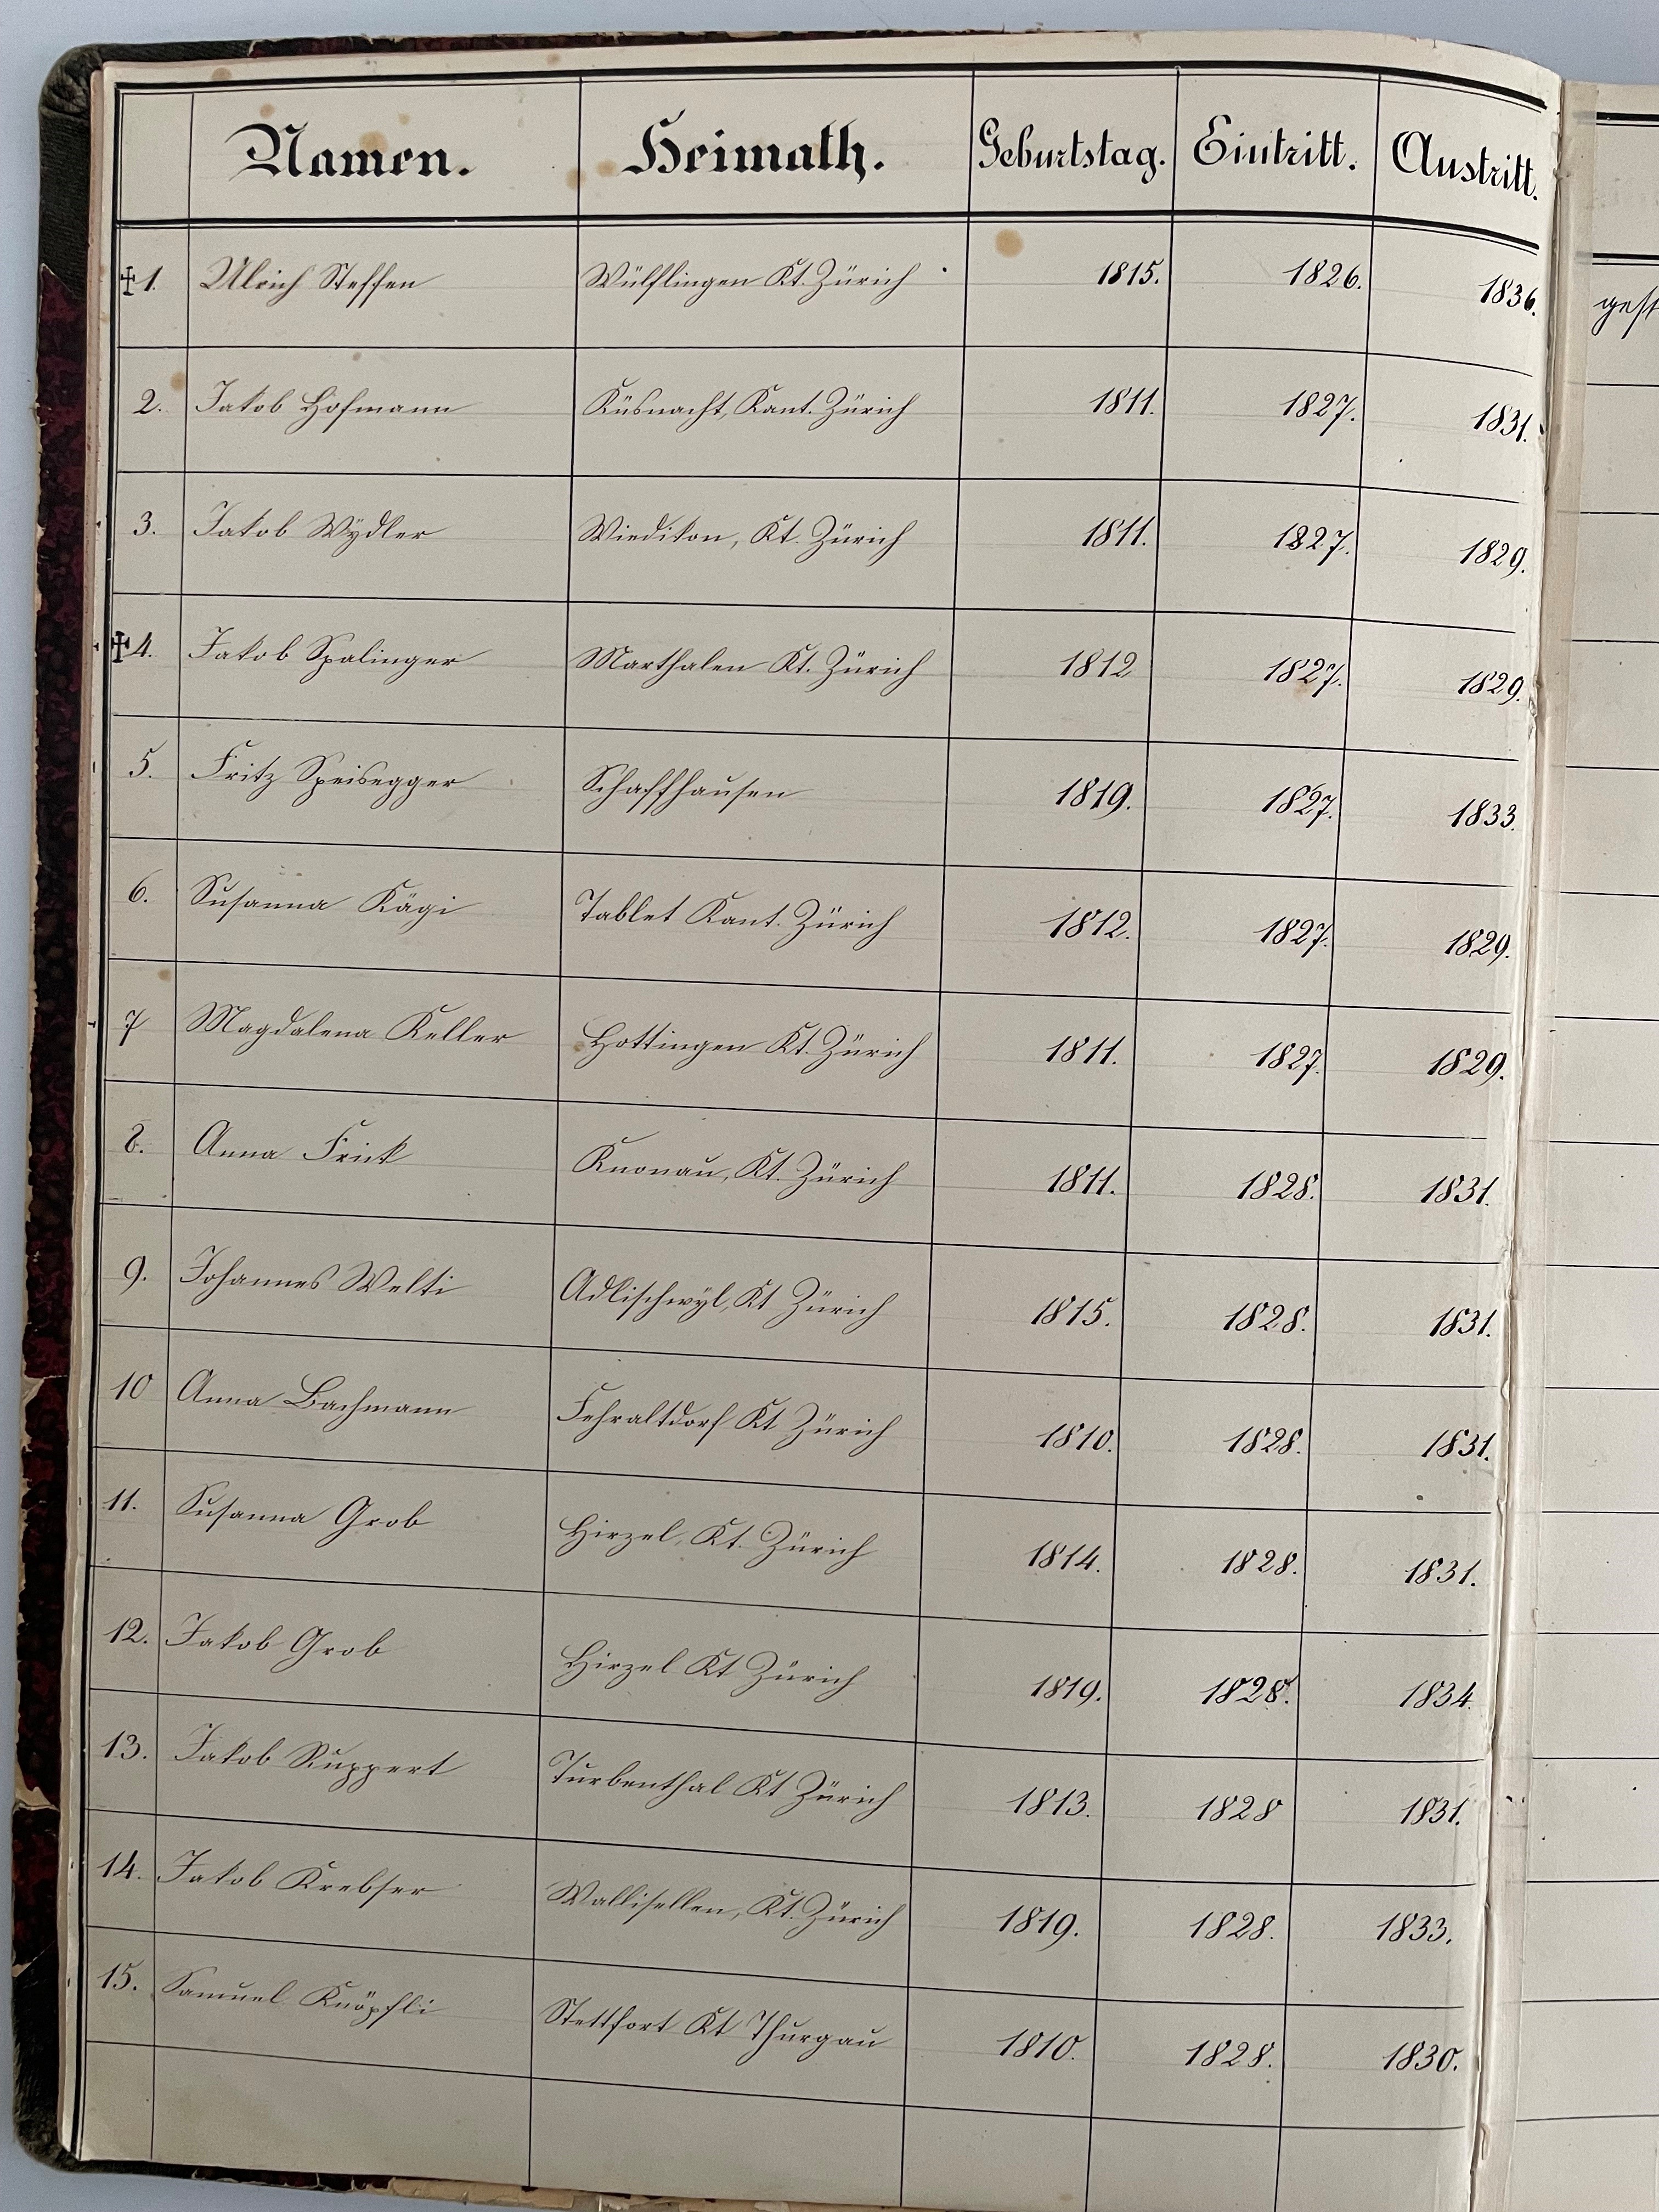 Namen. Heimath. Geburtstag. Eintritt. Austritt.
✝1. Ulrich Steffen Wülflingen Kt. Zürich 1815. 1826. 1836. gest
2. Jakob Hofmann Küsnacht, Kant. Zürich 1811. 1827. 1831.
3. Jakob Wÿdler Wiedikon, Kt. Zürich 1811. 1827. 1829.
✝4. Jakob Spalinger Marthalen Kt. Zürich 1812 1827. 1829.
5. Fritz Speisegger Schaffhausen 1819. 1827. 1833.
6. Susanna Kägi Tablet Kant. Zürich 1812. 1827. 1829.
7 Magdalena Keller Hottingen Kt. Zürich 1811. 1827. 1829.
8. Anna Frick Knonau, Kt. Zürich 1811. 1828. 1831.
9. Johannes Welti Adlischwÿl, Kt Zürich 1815. 1828. 1831.
10 Anna Bachmann Fehraltdorf Kt Zürich 1810. 1828. 1831.
11. Susanna Grob Hirzel, Kt. Zürich 1814. 1828. 1831.
12. Jakob Grob Hirzel Kt Zürich 1819. 1828. 1834.
13. Jakob Ruppert Turbenthal Kt Zürich 1813. 1828 1831.
14. Jakob Krebser Wallisellen, Kt. Zürich 1819. 1828. 1833.
15. Samuel Knöpfli Stettfort Kt Thurgau 1810. 1828. 1830.